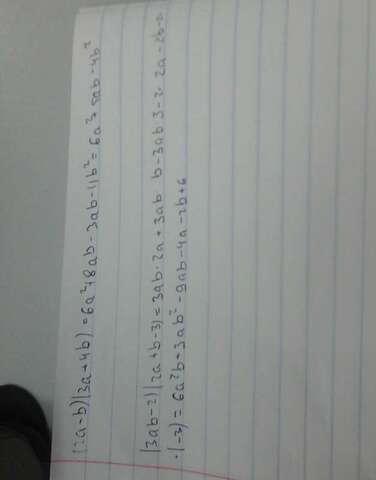 (2a-b)(3a+4b)=6a²+8ab-3ab-4b²=6a²+5ab-4b²
(3ab-2)(2a+b-3)=3ab·2a+3ab·b-3ab·3-2·2a-2b-2
·(-3)=6a²b+3ab²-9ab-4a-2b+6